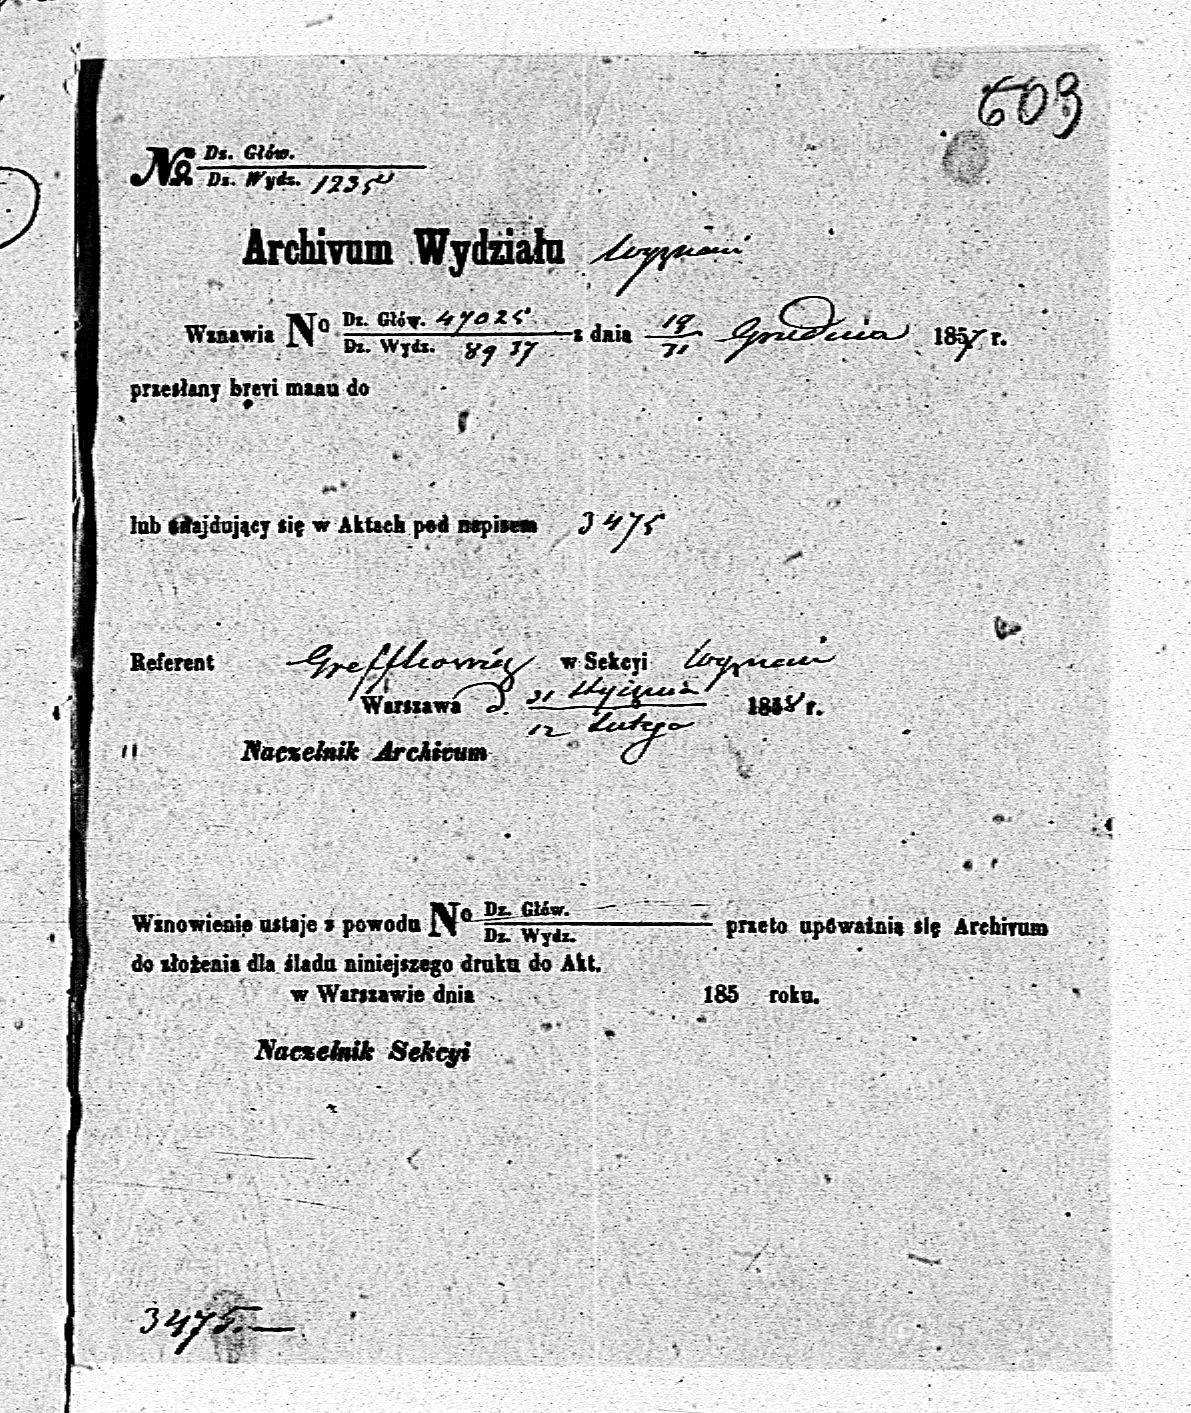 603
No Dz. Głów.
Dz. Wydz. 1235
Archivum Wydziału Wyznań
Wznawia No Dz. Głów. 47025 z dnia 19 Grudnia 1857 r.
Dz. Wydz. 8937 31
przesłany brevi manu do
lub znajdujący się w Aktach pod napisem 3475
Referent w Sekcyi Wyznań
Warszawa d. 31 Stycznia 1858 r.
12 Lutego
Naczelnik Archivum
Wznowienie ustaje z powodu No Dz. Głów. przeto upoważnia się Archivum
Dz. Wydz.
do złożenia dla śladu niniejszego druku do Akt.
w Warszawie dnia 185 roku.
Naczelnik Sekcyi
3475.—